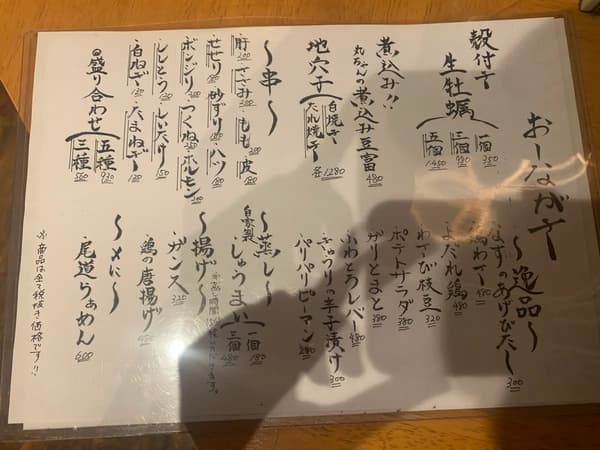 おーながで
殻付き
生牡蠣
一個 350
三個 980
五個 1450
煮込み!!
丸ちゃんの煮込み豆富 480
地穴子
白焼き
たれ焼き
各1280
〜串〜
・肝 200
・ささみ
・もも
・皮
・せせり
・砂ずり
・ハツ
・ボンジリ
・つくね
・ホルモン
・ししとう
・しいたけ 150
・白ねぎ
・たまねぎ
◎盛り合わせ
五種 930
三種 560
〜逸品〜
・なすのあげびたし 300
・鶏わさ 480
・よだれ鶏 480
・わさび枝豆 320
・ポテトサラダ 380
・ガリとまと 380
・ふわとろレバー 480
・きゅうりの辛子漬け 300
・パリパリピーマン 280
〜蒸し〜
自家製
・しゅうまい
一個 180
三個 480
〜揚げ〜
・ガンス 320
・鶏の唐揚げ
〜〆に〜
・尾道らぁめん 600
※商品は全て税抜き価格です!!